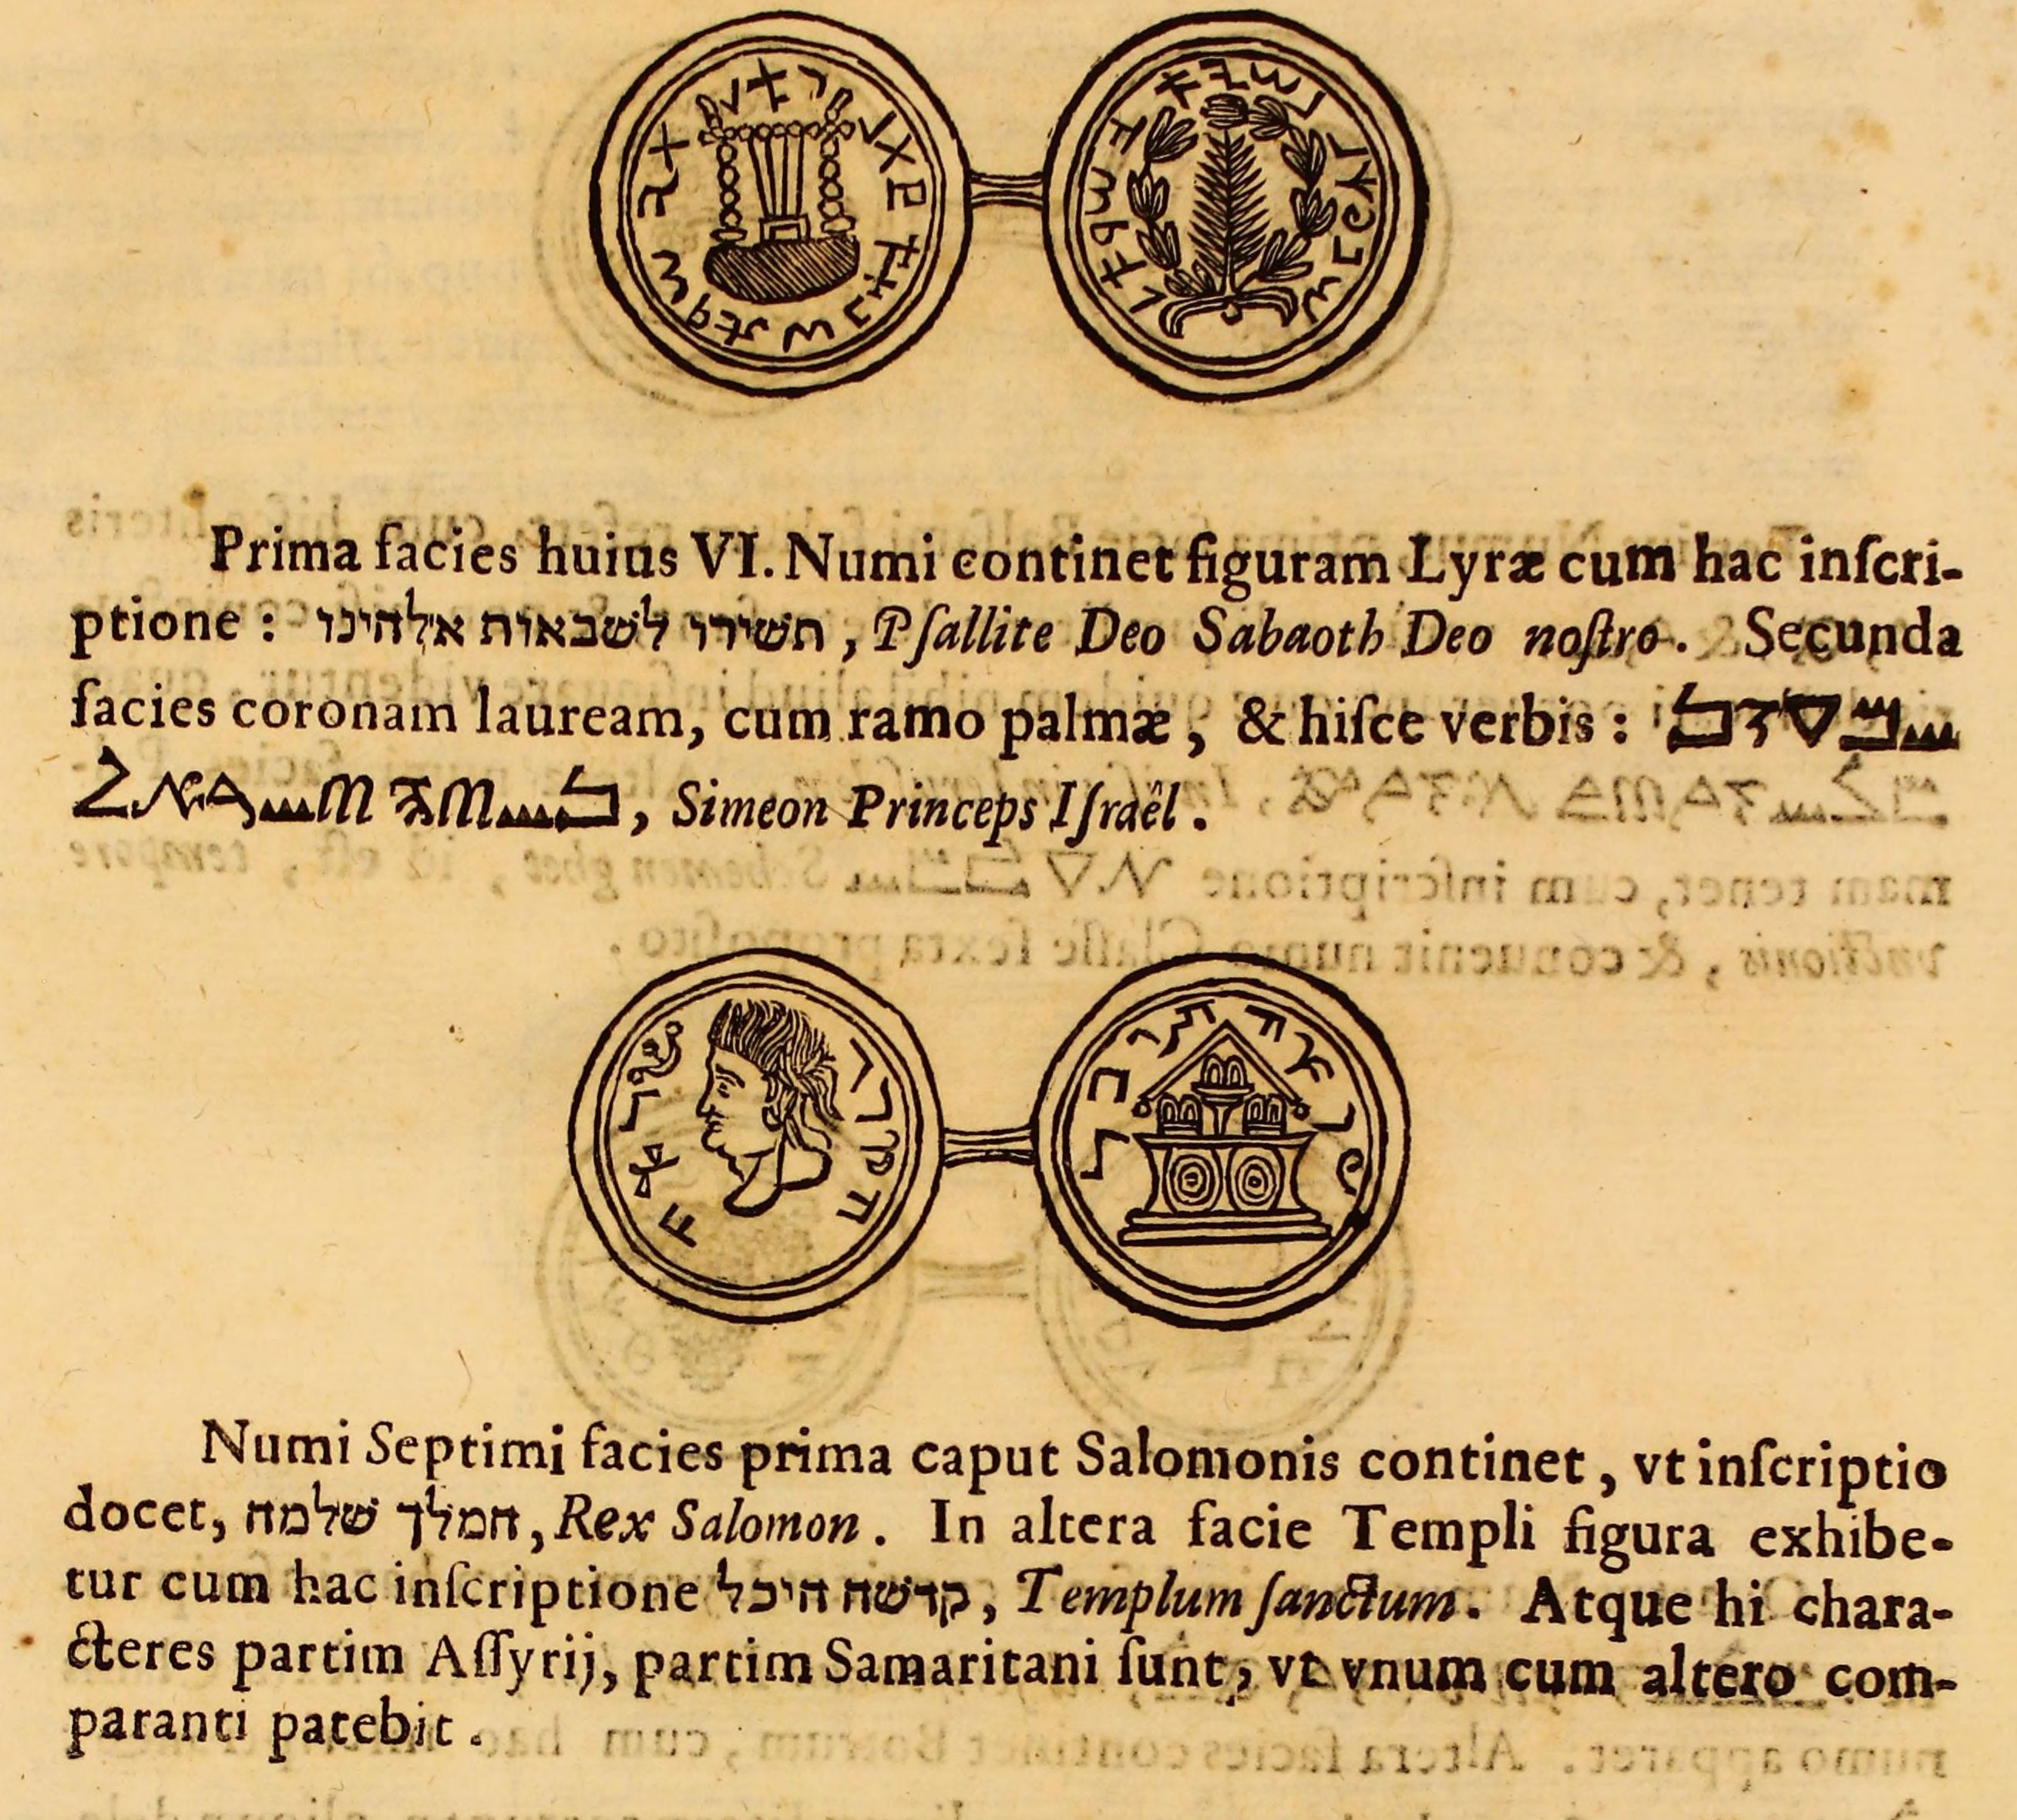 Prima facies huius VI. Numi continet figuram Lyræ cum hac inſcri-
ptione : השירו לשבאות אלהינו, Pſallite Deo Sabaoth Deo noſtro. Secunda
facies coronam lauream, cum ramo palmæ, & hiſce verbis : ࠔࠌࠏࠅࠍ
ࠍࠔࠉࠀ ࠉࠔࠓࠀࠋ, Simeon Princeps Iſraêl.
Numi Septimi facies prima caput Salomonis continet, vt inſcriptio
docet, המלך שלמה, Rex Salomon. In altera facie Templi figura exhibe-
tur cum hac inſcriptione קדשה היכל, Templum ſanctum. Atque hi chara-
cteres partim Aſſyrij, partim Samaritani ſunt, vt vnum cum altero com-
paranti patebit.